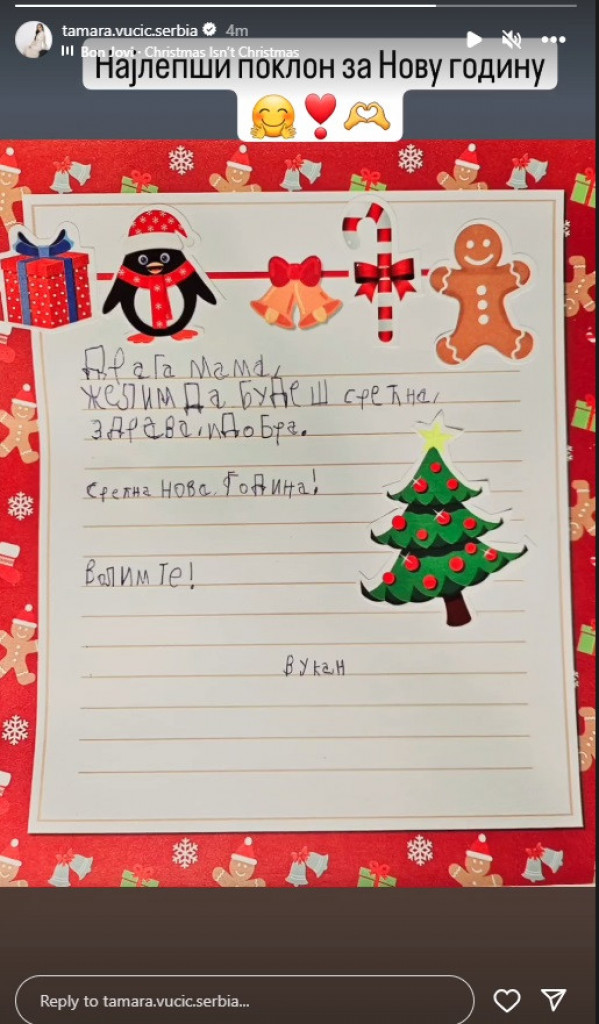 tamara.vucic.serbia 4m
Bon Jovi · Christmas Isn't Christmas
Најлепши поклон за Нову годину
🤗❣️🫶
Драга мама,
желим да будеш срећна,
здрава, и добра.
Срећна нова година!
Волим те!
Вукан
Reply to tamara.vucic.serbia...